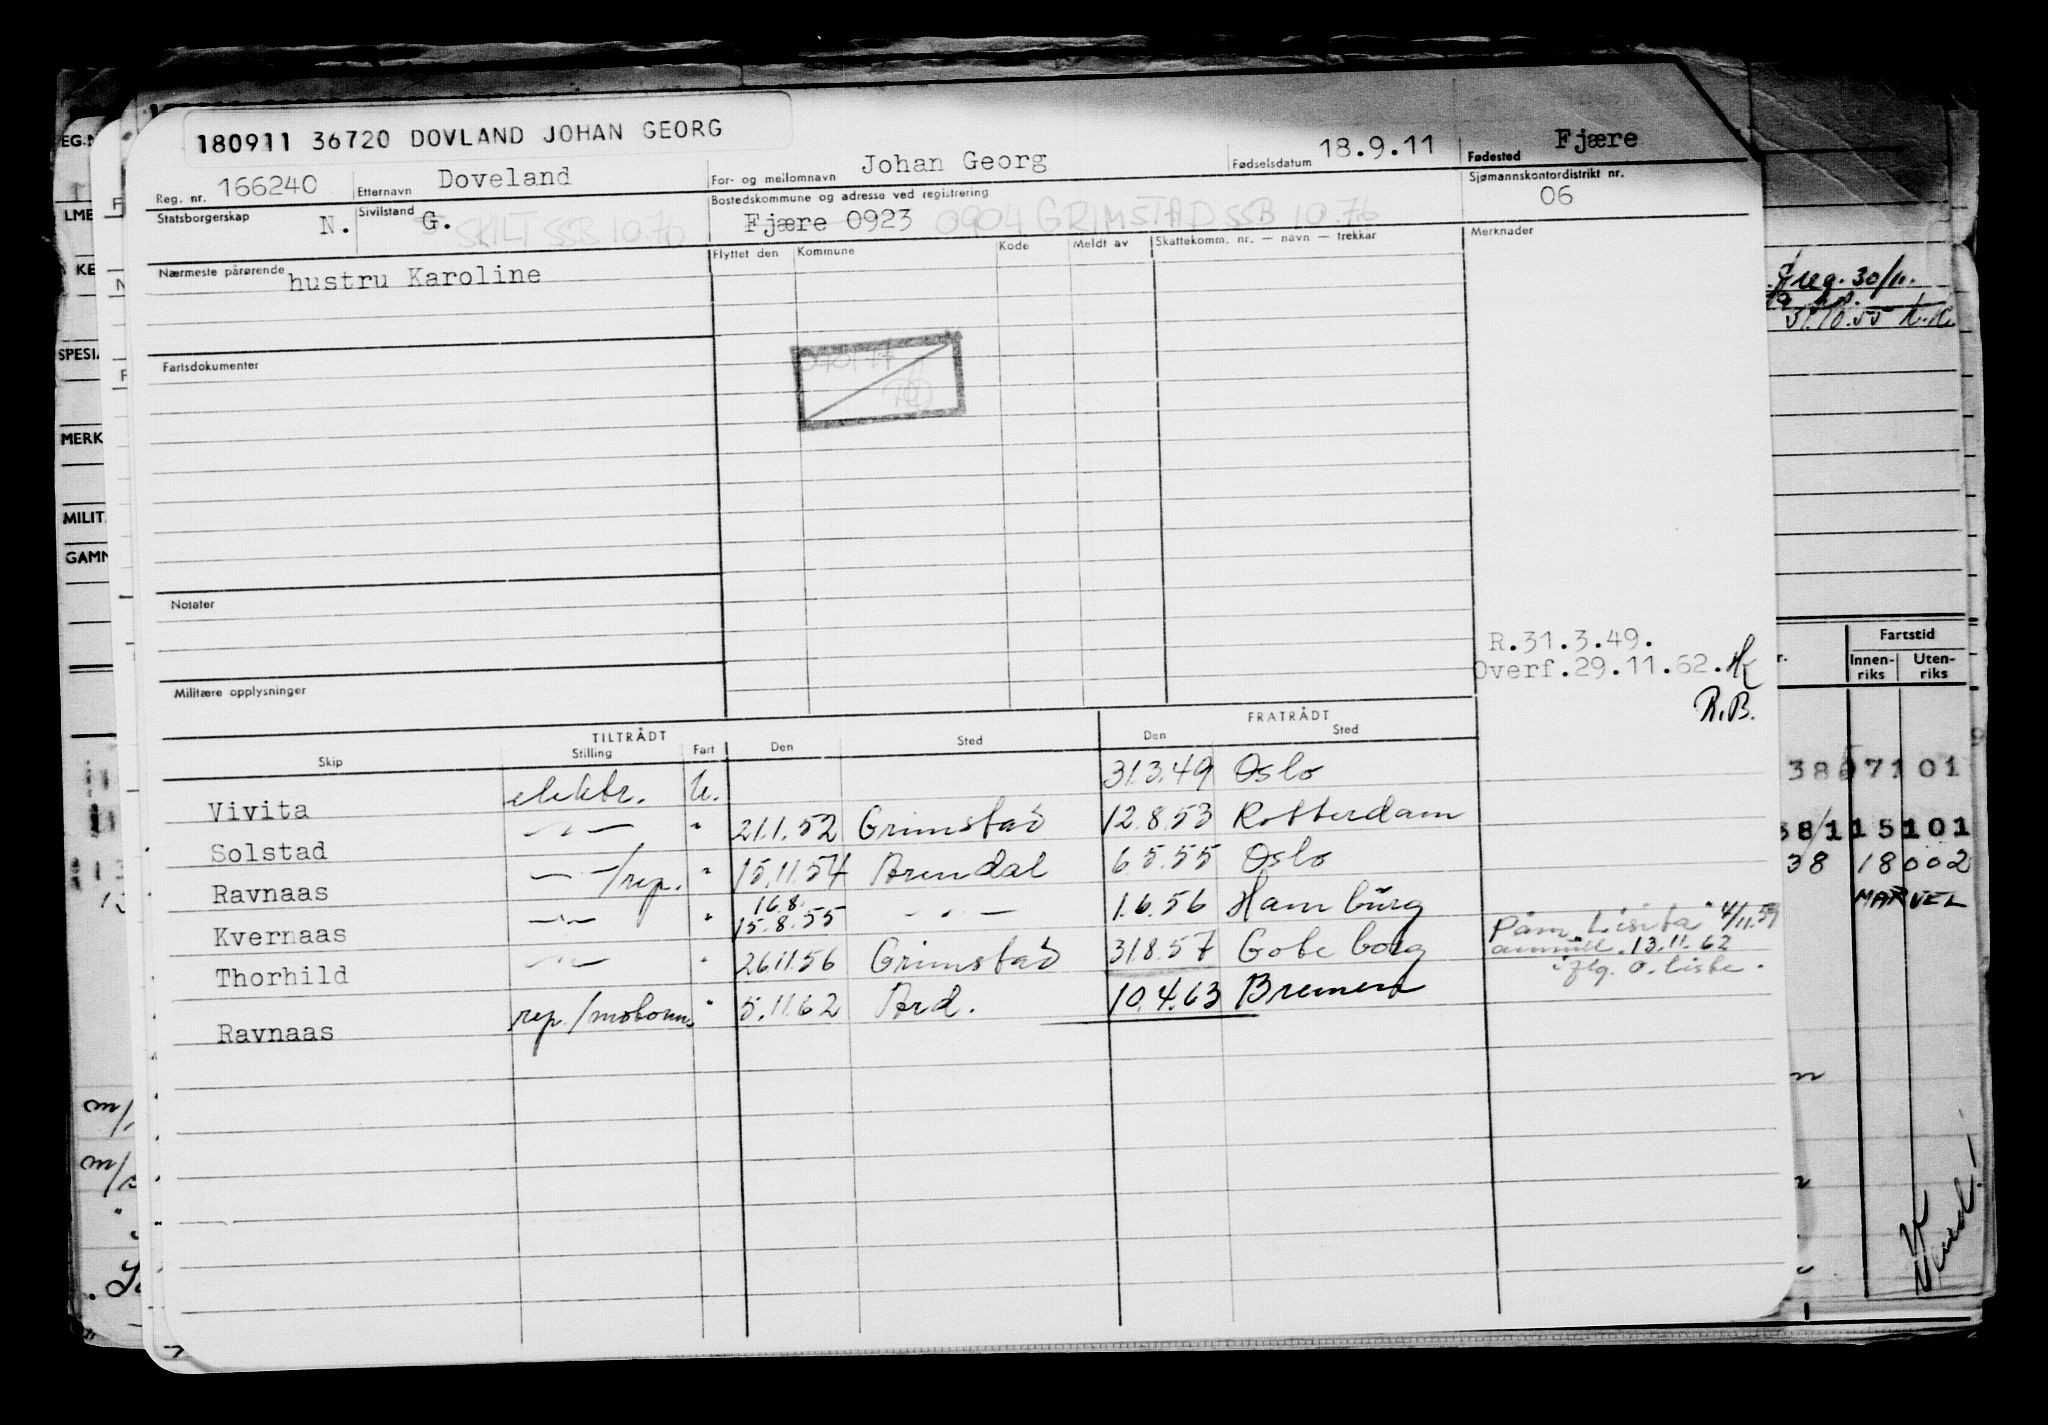 180911 36720 DOVLAND JOHAN GEORG
Reg. nr. 166240 Etternavn Doveland For- og mellomnavn Johan Georg Fødselsdatum 18.9.11 Fødested Fjære
Statsborgerskap N. Sivilstand G. SKILT SSB 10.76 Bostedskommune og adresse ved registrering Fjære 0923 0904 GRIMSTAD SSB 10.76 Sjømannskontordistrikt nr. 06
Nærmeste pårørende hustru Karoline Flyttet den Kommune Kode Meldt av Skattekomm. nr. — navn — trekkår Merknader
Fartsdokumenter
Notater
R.31.3.49.
Overf.29.11.62.
R.B.
Militære opplysninger
TILTRÅDT FRATRÅDT
Skip Stilling Fart Den Sted Den Sted
Vivita elektr. U. 31.3.49 Oslo
Solstad — " — " 21.1.52 Grimstad 12.8.53 Rotterdam
Ravnaas — " — /rep. " 15.11.54 Arendal 6.5.55 Oslo
16.8.
Kvernaas — " — " 15.8.55 — " — 1.6.56 Hamburg
Thorhild — " — " 26.11.56 Grimstad 31.8.57 Gøteborg
Påm. "Lisita" 4/11.59
annull. 13.11.62
iflg. o. liste.
Ravnaas rep./motorm. " 5.11.62 Ard. 10.4.63 Bremen
EG.N
LME
KE
SPESI
MERK
MILIT
GAMN
m/
m/s
reg. 30/11.
31.10.55
Fartstid
Innen-riks Uten-riks
38 07101
38/1 15101
38 18002
MARVEL